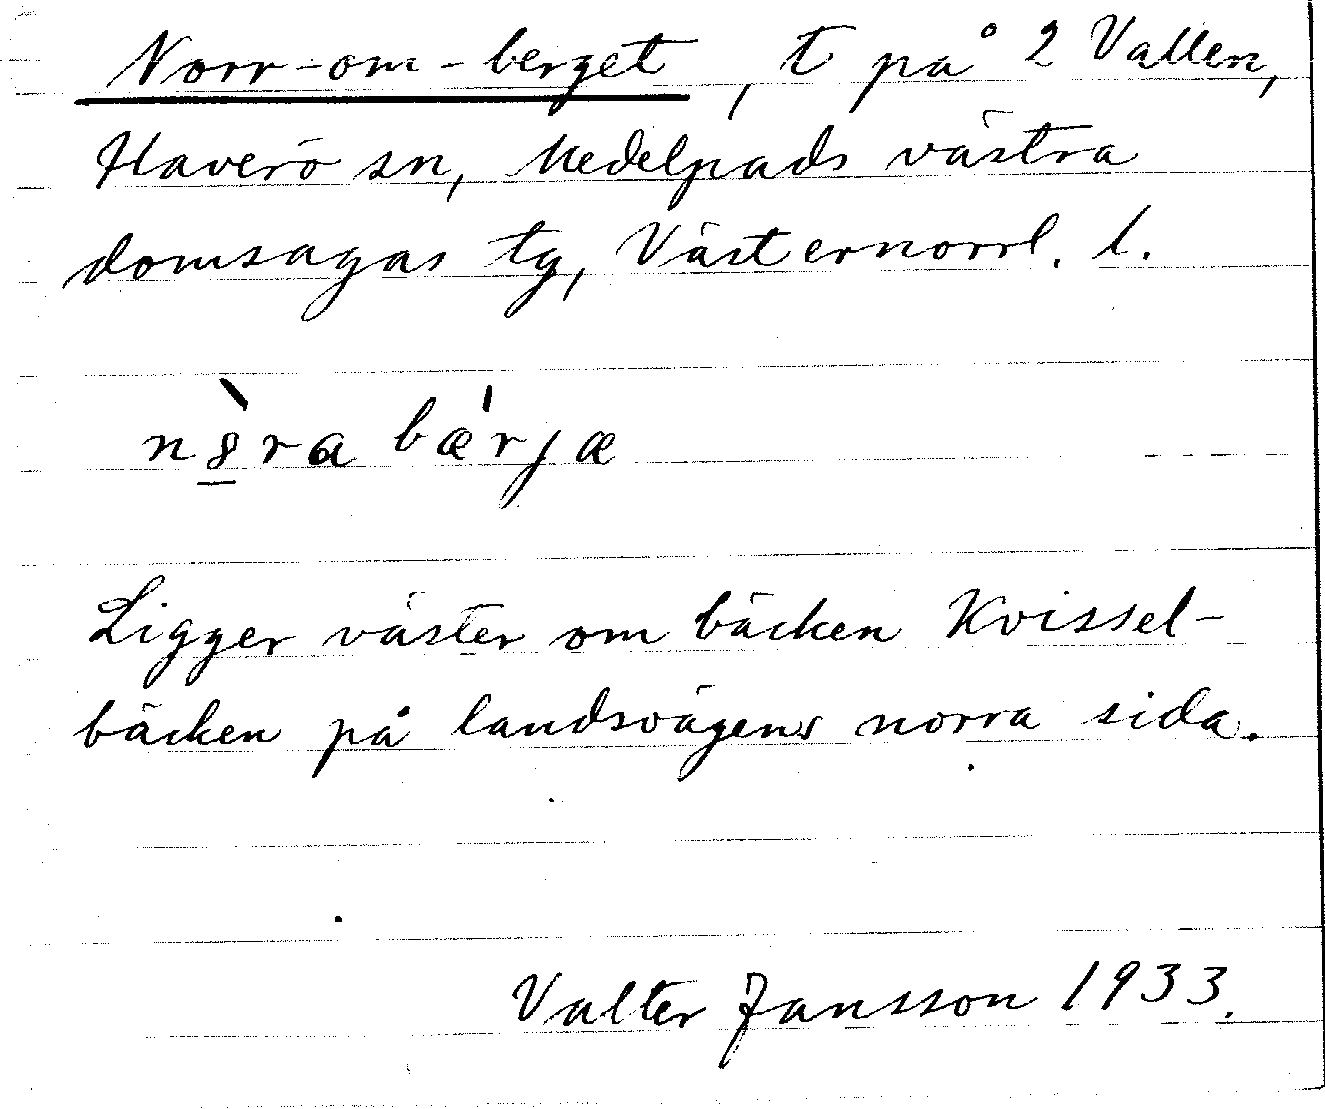 Norr-om-berget, t på 2 Vallen,
Haverö sn, Medelpads västra
domsagas tg, Västernorrl. l.
n8̲̀ra bǽrjæ
Ligger väster om bäcken Kvissel-
bäcken på landsvägens norra sida.
Valter Jansson 1933.